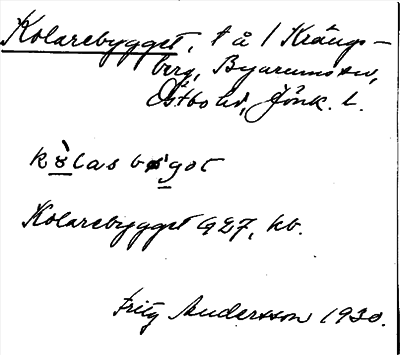 Kolarebygget, t å 1 Krängs-
berg, Byarums sn,
Östbo hd, Jönk. l.
kòlasbygət
Kolarebygget 927, kb.
Fritz Andersson 1930.